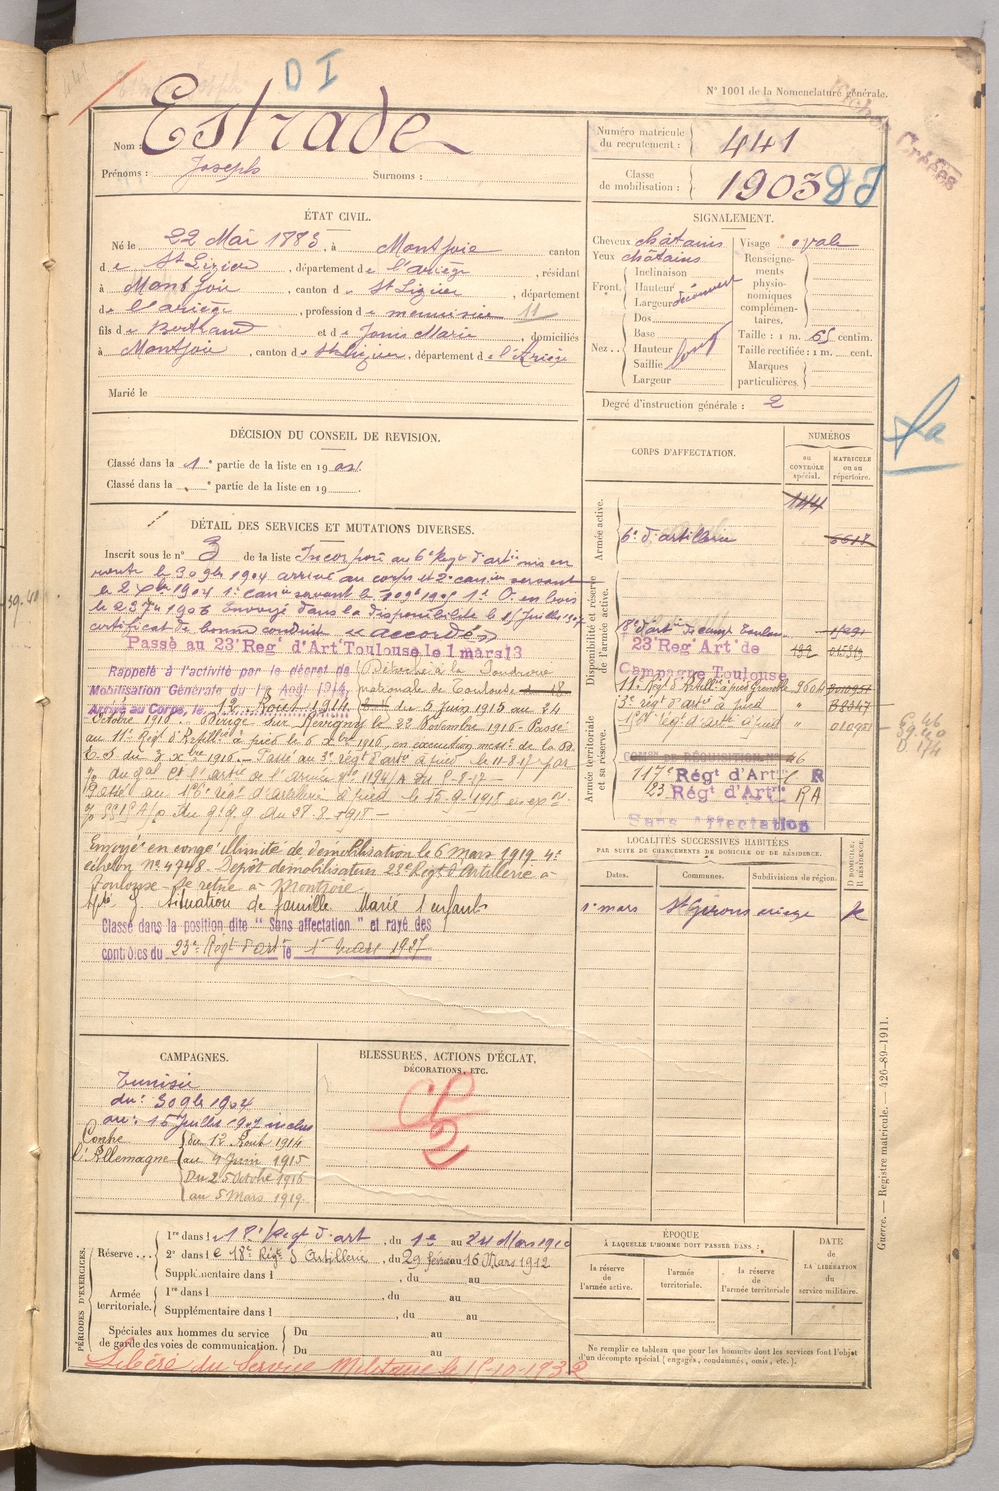 D I
N° 1001 de la Nomenclature générale.
Nom : Estrade
Prénoms : Joseph Surnoms :
Numéro matricule du recrutement : 441
Classe de mobilisation : 1903 DI
ÉTAT CIVIL.
Né le 22 Mai 1883, à Montjoie canton
de St Lizier, département de l'ariège, résidant
à Montjoie, canton de St Lizier, département
de l'ariège, profession de menuisier 11
fils de Bertrand et de Jonis Marie, domiciliés
à Montjoie, canton de St Lizier, département de l'Ariège
Marié le
SIGNALEMENT.
Cheveux châtains
Yeux châtains
Front. Inclinaison
Hauteur
Largeur découvert
Nez.. Dos
Base
Hauteur fort
Saillie
Largeur
Visage ovale
Renseignements physionomiques complémentaires.
Taille : 1 m. 65 centim.
Taille rectifiée : 1 m. cent.
Marques particulières.
Degré d'instruction générale : 2
DÉCISION DU CONSEIL DE REVISION.
Classé dans la 1e partie de la liste en 1904
Classé dans la e partie de la liste en 19
DÉTAIL DES SERVICES ET MUTATIONS DIVERSES.
Inscrit sous le n° 3 de la liste Incorporé au 6e Regt d'artie mis en
route le 30 9bre 1904 arrivé au corps et 2e canier servant
le 2 Xbre 1904 1e canier servant le
le 23 7bre 1906 Envoyé dans la disponibilité le 15 Juillet 1907
certificat de bonne conduite "accordé"
Passé au 23e Reg' d'Art' Toulouse Le 1 mars 13
Rappelé à l'activité par le décret de
Mobilisation Générale du 1er Août 1914,
Arrivé au Corps, le 12 Août 1914
Détaché à la Poudrerie
nationale de Toulouse
du 5 juin 1915 au 24
Octobre 1916. Dirigé sur Revigny le 22 Novembre 1916. Passé
au 11e Régt d'Artillie à pied le 6 Xbre 1916, en exécution messe de la D.
E. S du 3 Xbre 1916. Passé au 3e régt d'artie à pied le 11-8-17 par
du Gal Ct l'artie de l'Armée No 1194/A du 8-8-17
Passé au régt d'artillerie à pied le 15-9-1918
du G.Q.G du 28-8-1918
Envoyé en congé illimité de démobilisation le 6 mars 1919 4e
échelon No 4748. Dépôt démobilisateur 23e Régt d'Artillerie à
Toulouse. Se retire à Montjoie.
Situation de famille Marié 1 enfant
Classé dans la position dite "Sans affectation" et rayé des
contrôles du 23e Régt d'artie le 1er mars 1927
CORPS D'AFFECTATION.
NUMÉROS
au CONTRÔLE spécial.
MATRICULE ou au répertoire.
Armée active.
144
6e d'artillerie 6617
Disponibilité et réserve de l'armée active.
18e d'artie de camp Toulouse
23e Reg' Art' de Campagne Toulouse 192
11e Regt d'Artillie à pied Grenoble 9604
3e régt d'artie à pied "
régt d'artie à pied "
Armée territoriale et sa réserve.
COMon DE RÉQUISITION No 46
117e Régt d'Art R
23 Régt d'Art RA
Sans Affectation
LOCALITÉS SUCCESSIVES HABITÉES
PAR SUITE DE CHANGEMENTS DE DOMICILE OU DE RÉSIDENCE.
Dates.
Communes.
Subdivisions de région.
D DOMICILE. R RÉSIDENCE.
1er mars St Girons ariège
CAMPAGNES.
Tunisie
du : 30 9bre 1904
au : 15 Juillet 1907 inclus
Contre l'Allemagne
du 12 Août 1914
au 9 Juin 1915
Du 25 Octobre 1916
au 5 Mars 1919.
BLESSURES, ACTIONS D'ÉCLAT,
DÉCORATIONS, ETC.
PÉRIODES D'EXERCICES.
Réserve... 1re dans le 18e Regt d'art, du 1er au 24 Mars 1910
2e dans le 18e Régt d'Artillerie, du 29 février au 16 Mars 1912
Supplémentaire dans l , du au
Armée territoriale. 1re dans l , du au
Supplémentaire dans l , du au
Spéciales aux hommes du service de garde des voies de communication. Du au
Du au
Libéré du Service Militaire le 15-10-1932
ÉPOQUE
À LAQUELLE L'HOMME DOIT PASSER DANS :
la réserve de l'armée active.
l'armée territoriale.
la réserve de l'armée territoriale
DATE de LA LIBÉRATION du service militaire.
Ne remplir ce tableau que pour les hommes dont les services font l'objet
d'un décompte spécial (engagés, condamnés, omis, etc.).
Guerre. — Registre matricule. — 426-89-1911.